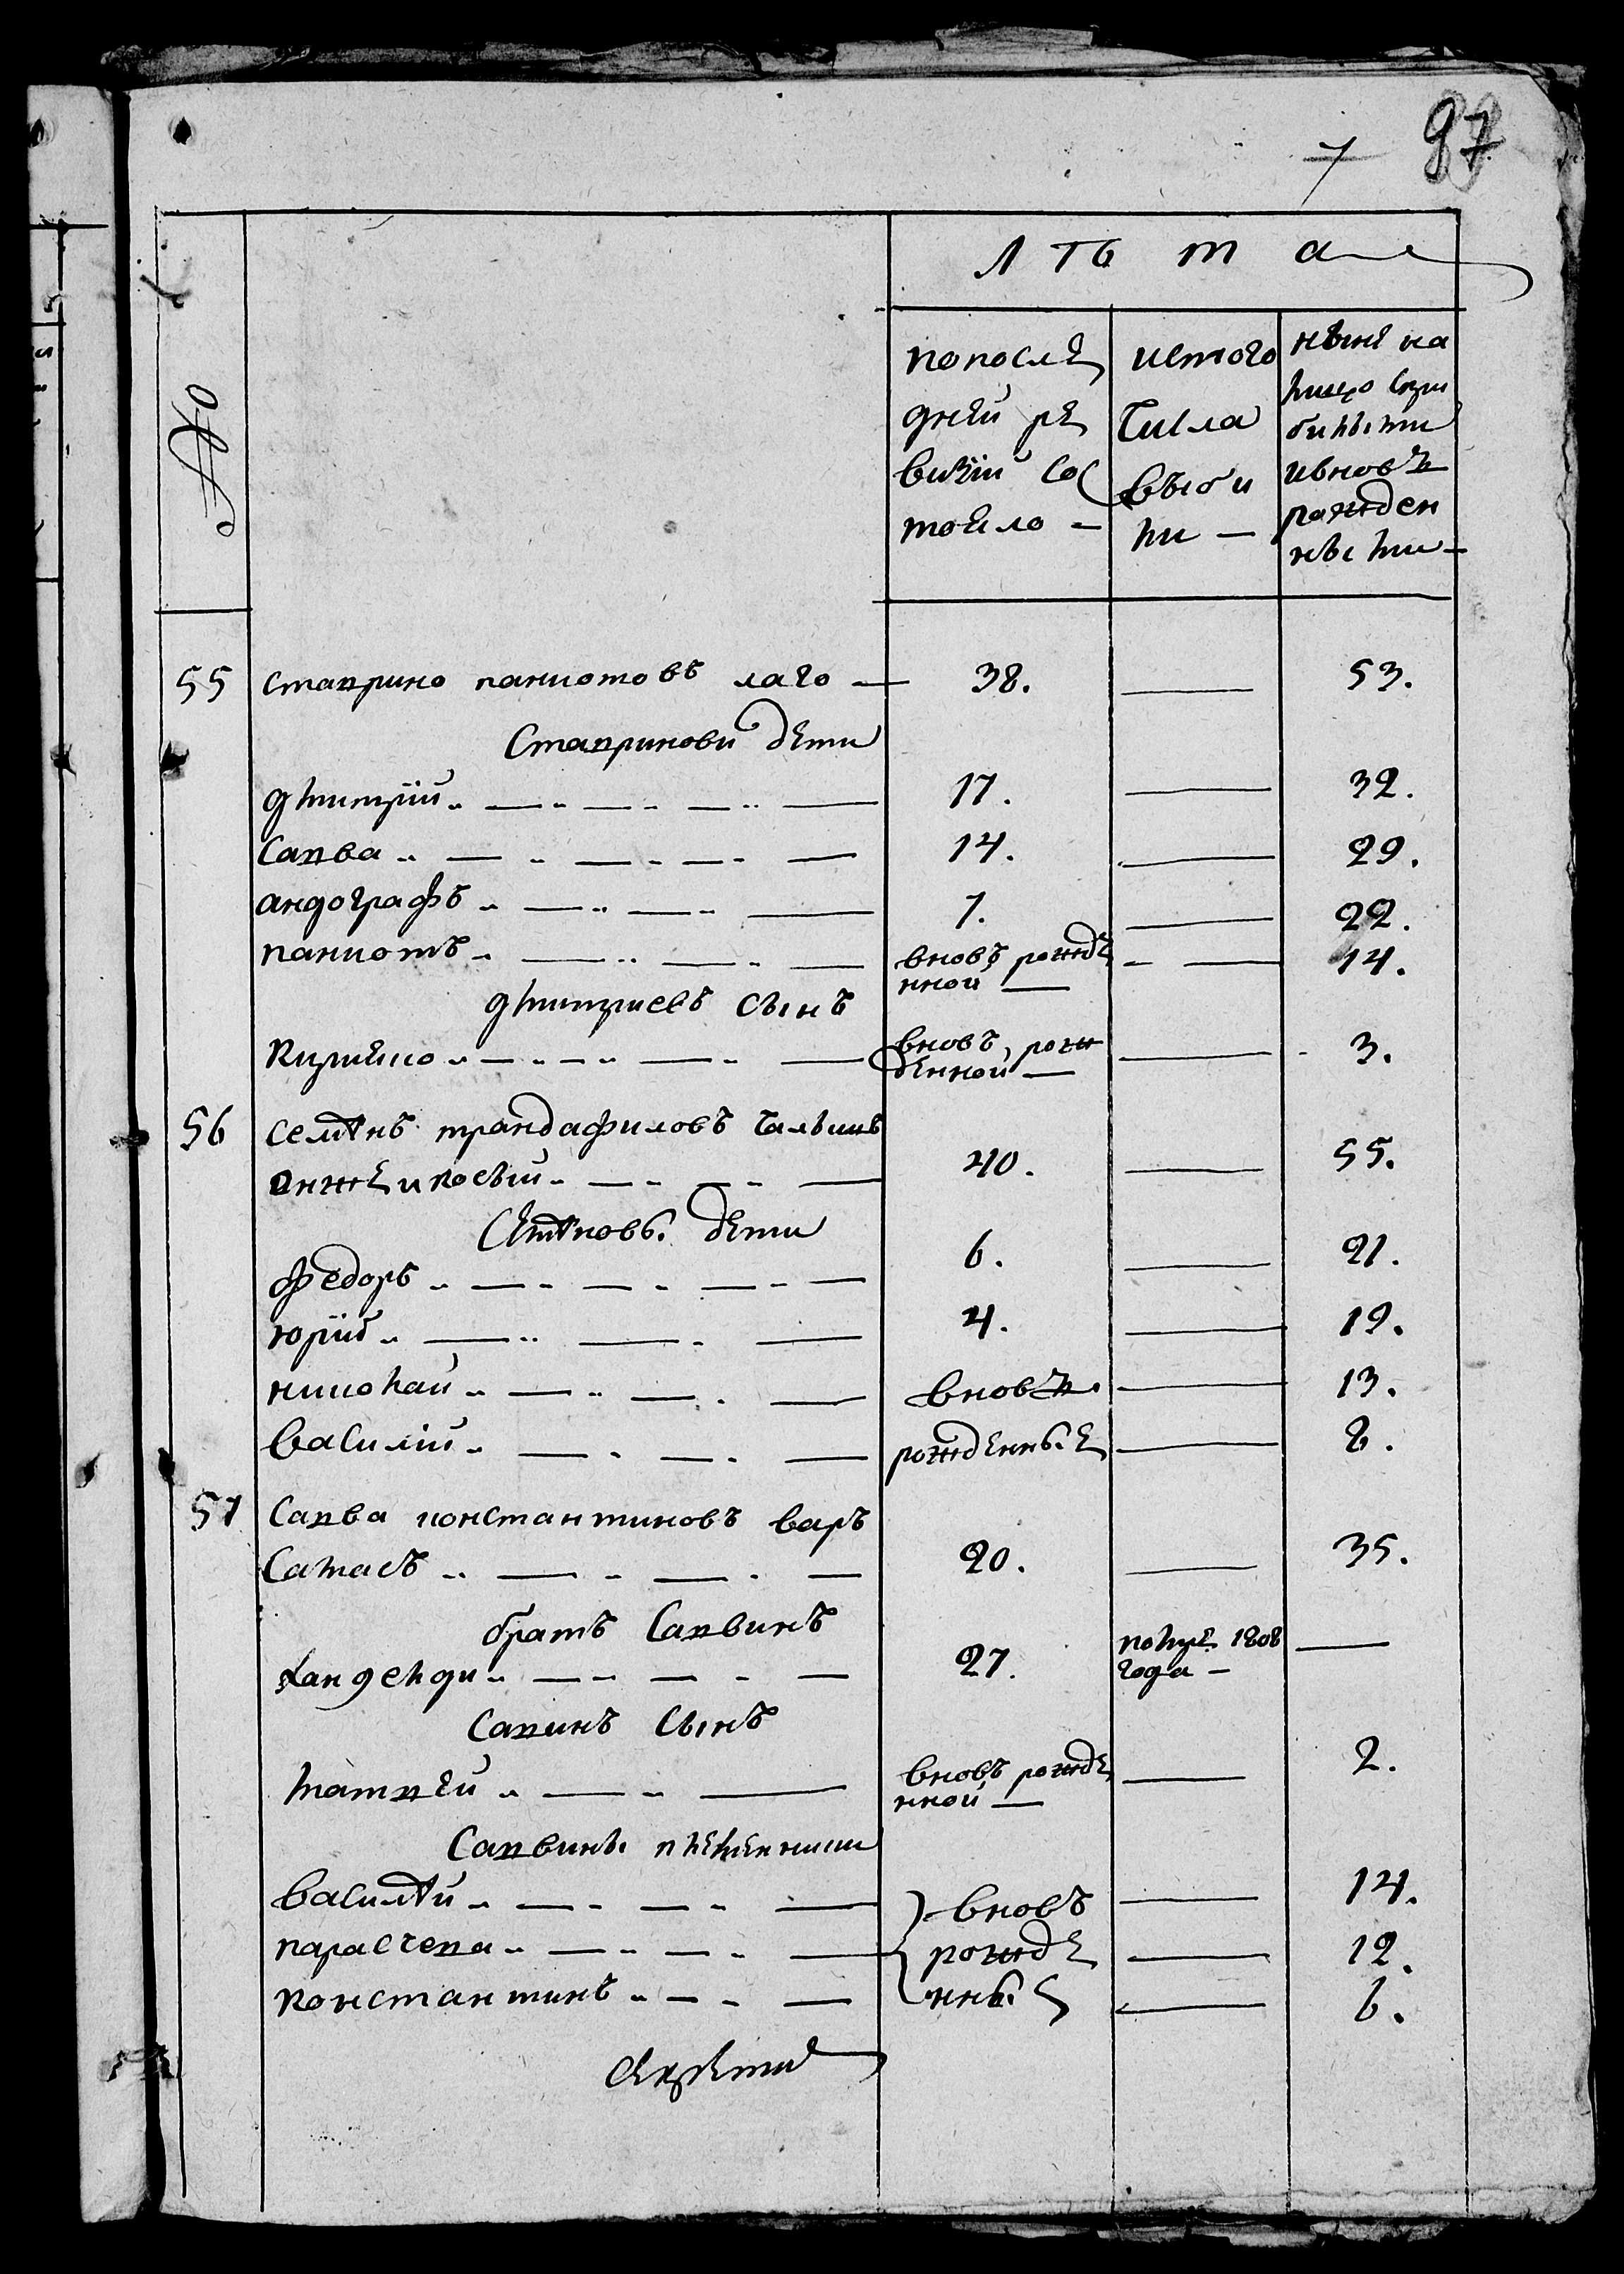 7 97
№
Лѣта
по послѣ
дней ре
визіи сос
тояло —
ис того
числа
выбы
ли —
ныне на
лицо съ при
былыми
и вновь
рожден
ными —
55 ставрино паниотовъ лаго — 38. — 53.
Ставринови дети
дмитрій 17. — 32.
Савва 14. — 29.
андографъ 7. — 22.
паниотъ вновь рожде
нной — 14.
дмитриевъ сынъ
Кирияко вновь рож
денной — 3.
56 семѧнъ трандафиловъ
40. — 55.
Семѧновы дети
федоръ 6. — 21.
юрій 4. — 19.
николай вновь 13.
василій рожденные 8.
57 Савва константиновъ варъ
самасъ 20. — 35.
братъ Саввинъ
27. помре 1808
года —
Савинъ сынъ
матвей вновь рожде
нной — 2.
Саввины племенники
василѧй вновь 14.
парасчева рожде 12.
константинъ нные 6.